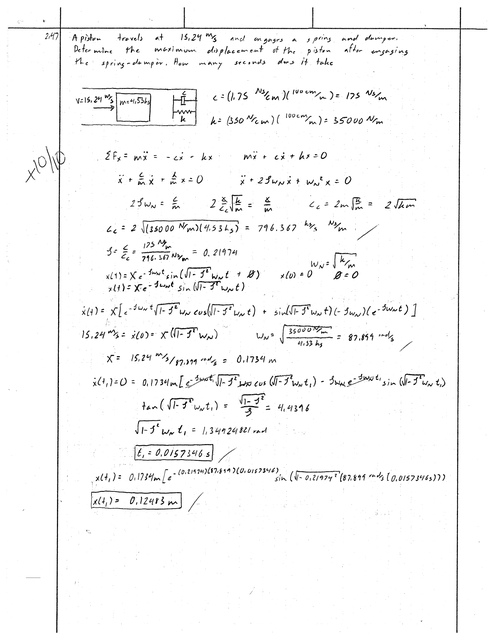 2.47 A piston travels at 15.24 m/s and engages a spring and damper.
Determine the maximum displacement of the piston after engaging
the spring-damper. How many seconds does it take
V=15.24 m/s m=4.53kg c k
c = (1.75 Ns/cm)(100cm/m) = 175 Ns/m
k = (350 N/cm)(100cm/m) = 35000 N/m
+10/10
ΣFx = mẍ = -cẋ - kx mẍ + cẋ + kx = 0
ẍ + c/m ẋ + k/m x = 0 ẍ + 2ζωnẋ + ωn²x = 0
2ζωn = c/m 2 c/cc √k/m = c/m cc = 2m√k/m = 2√km
cc = 2√(35000 N/m)(4.53kg) = 796.367 kg/s Ns/m
ζ = c/cc = 175 Ns/m / 796.367 Ns/m = 0.21974
ωn = √k/m
x(t) = X e^-ζωnt sin(√1-ζ² ωn t + ϕ) x(0) = 0 ϕ = 0
x(t) = X e^-ζωnt sin(√1-ζ² ωn t)
ẋ(t) = X[e^-ζωnt √1-ζ² ωn cos(√1-ζ² ωn t) + sin(√1-ζ² ωn t)(-ζωn)(e^-ζωnt)]
15.24 m/s = ẋ(0) = X(√1-ζ² ωn) ωn = √35000 N/m / 4.53 kg = 87.899 rad/s
X = 15.24 m/s / 87.899 rad/s = 0.1734 m
ẋ(t) = 0 = 0.1734m[e^-ζωnt₁ √1-ζ² ωn cos(√1-ζ² ωn t₁) - ζωn e^-ζωnt₁ sin(√1-ζ² ωn t₁)
tan(√1-ζ² ωn t₁) = √1-ζ² / ζ = 4.4396
√1-ζ² ωn t₁ = 1.34924821 rad
t₁ = 0.0157346 s
x(t₁) = 0.1734m[e^-(0.21974)(87.899)(0.0157346) sin(√1-0.21974² (87.899 rad/s)(0.0157346s)))
x(t₁) = 0.12483 m